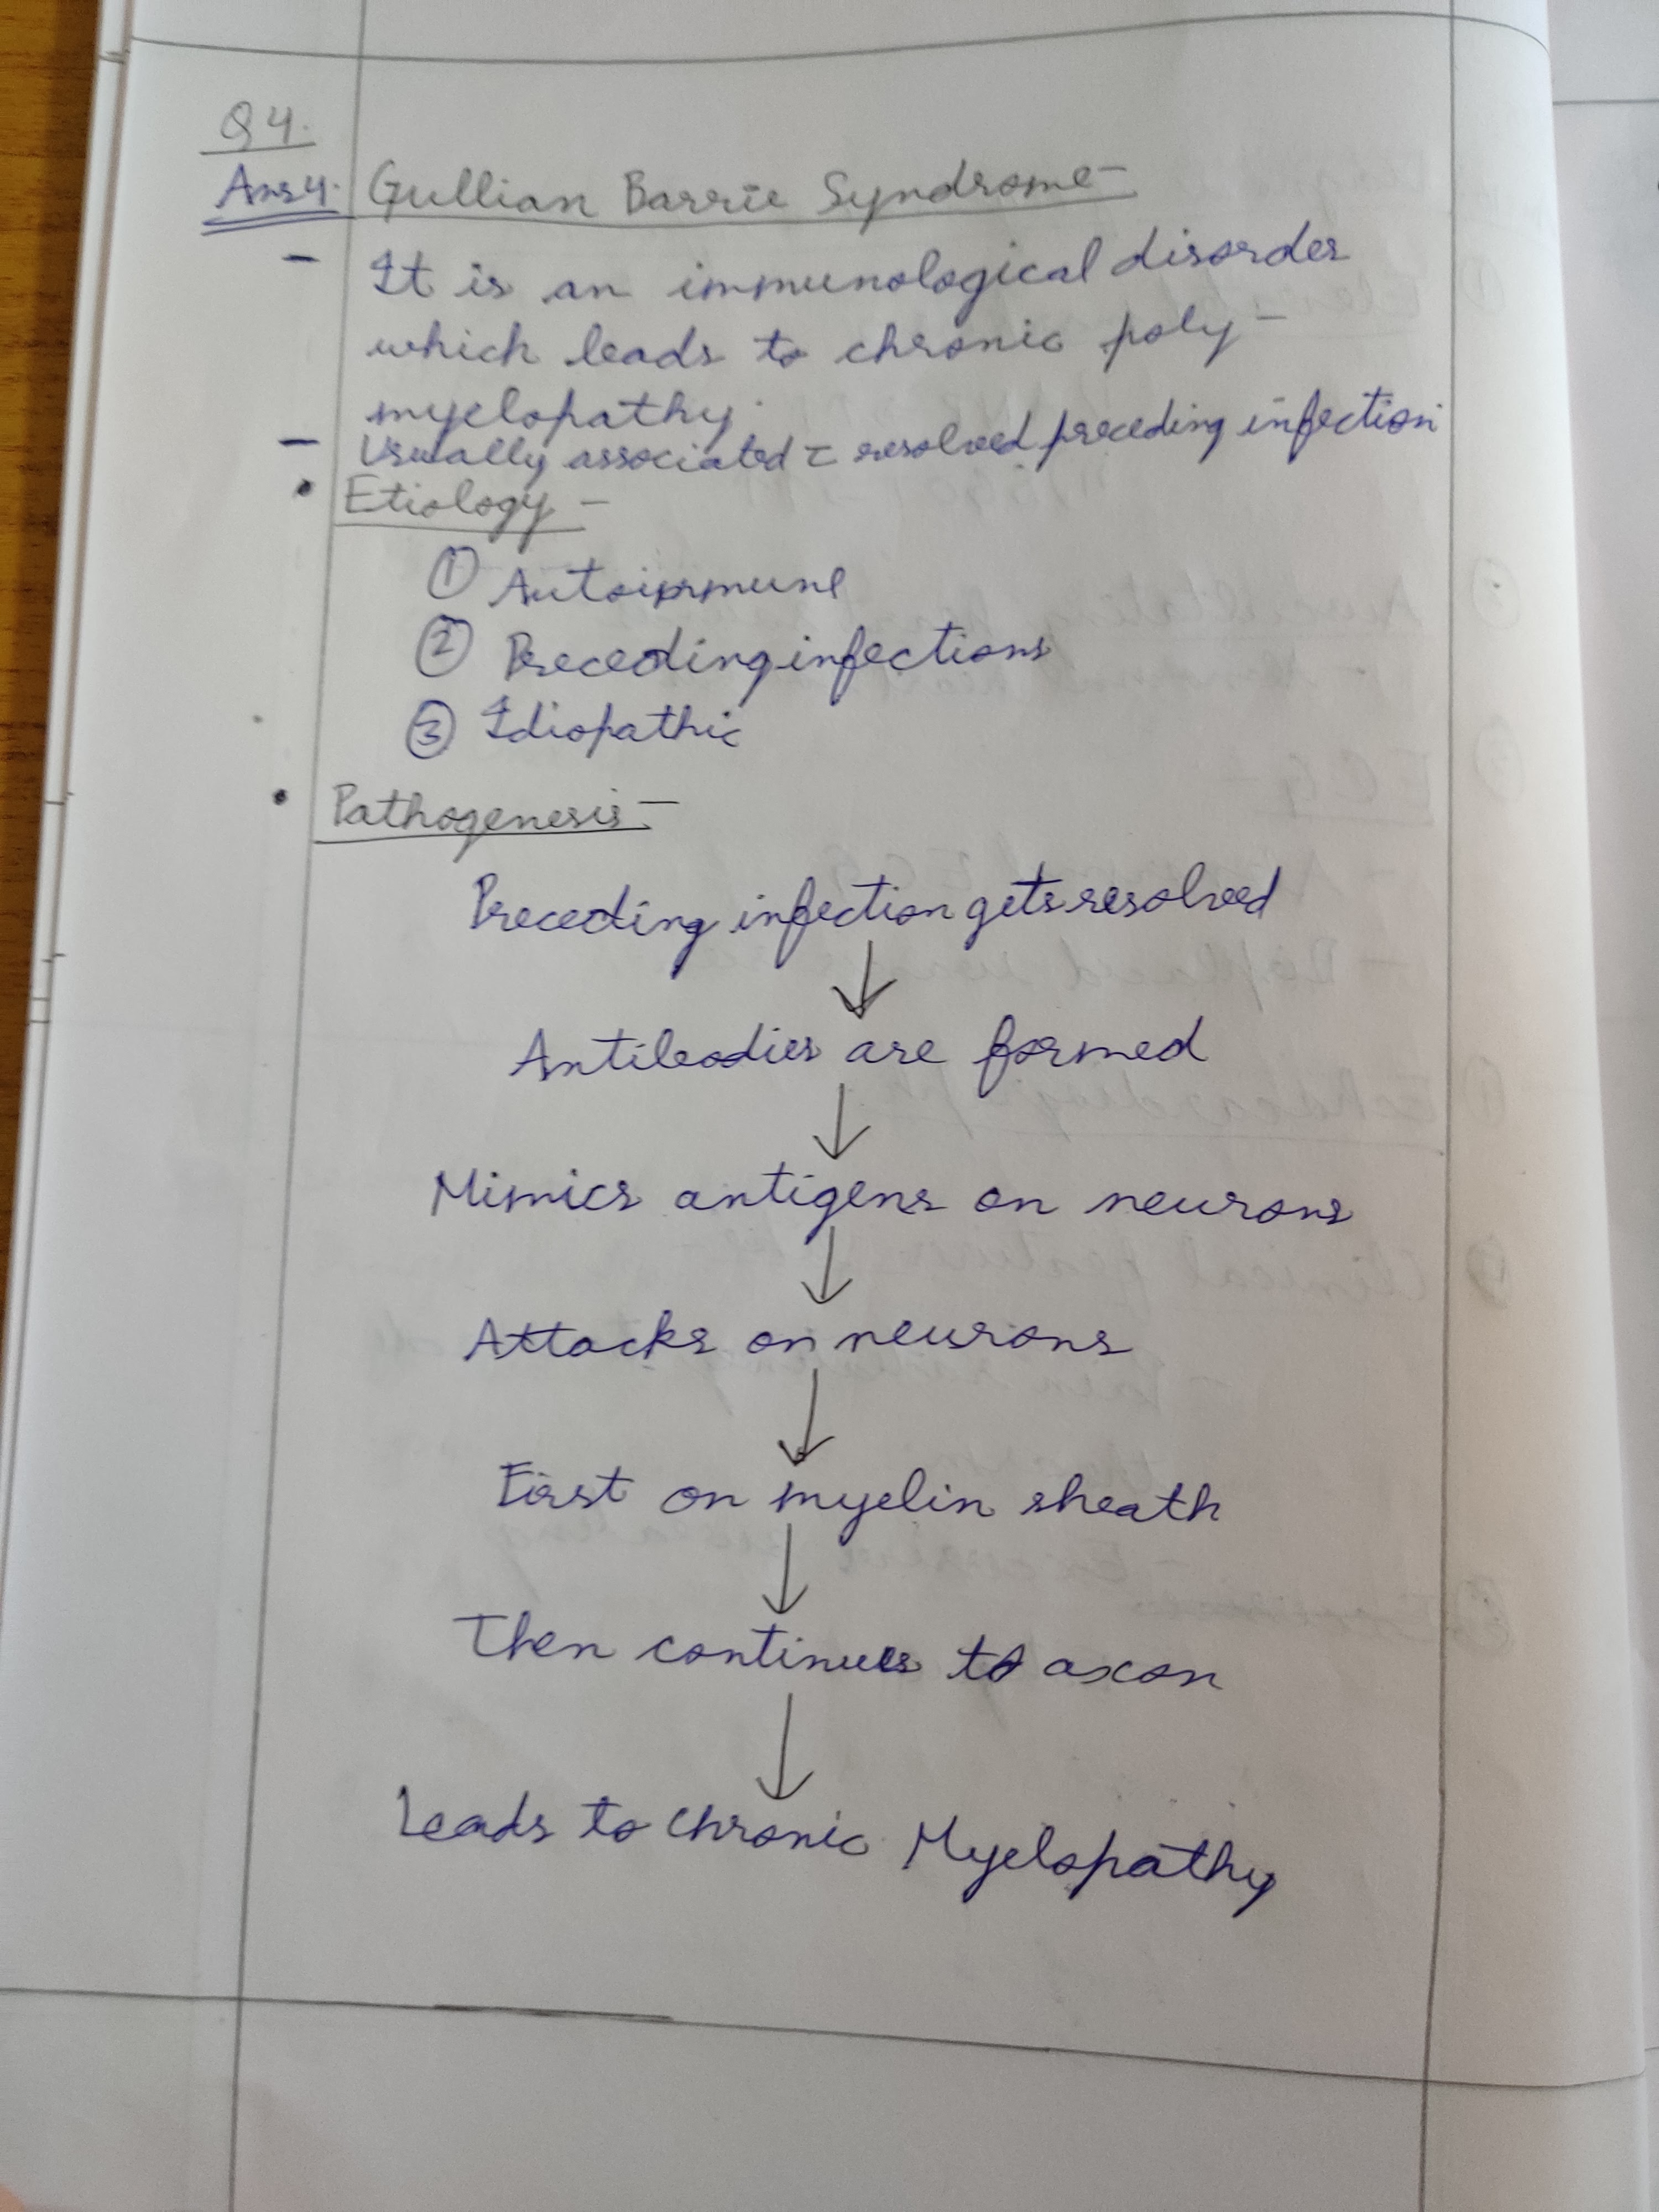 Q4.
Ans4. Gullian Barrie Syndrome -
- It is an immunological disorder
which leads to chronic poly-
myelopathy.
- Usually associated c̅ resolved preceding infection
• Etiology -
① Autoimmune
② Preceding infections
③ Idiopathic
• Pathogenesis -
Preceding infection gets resolved
↓
Antibodies are formed
↓
Mimics antigens on neurons
↓
Attacks on neurons
↓
First on myelin sheath
↓
Then continues to axon
↓
Leads to chronic Myelopathy